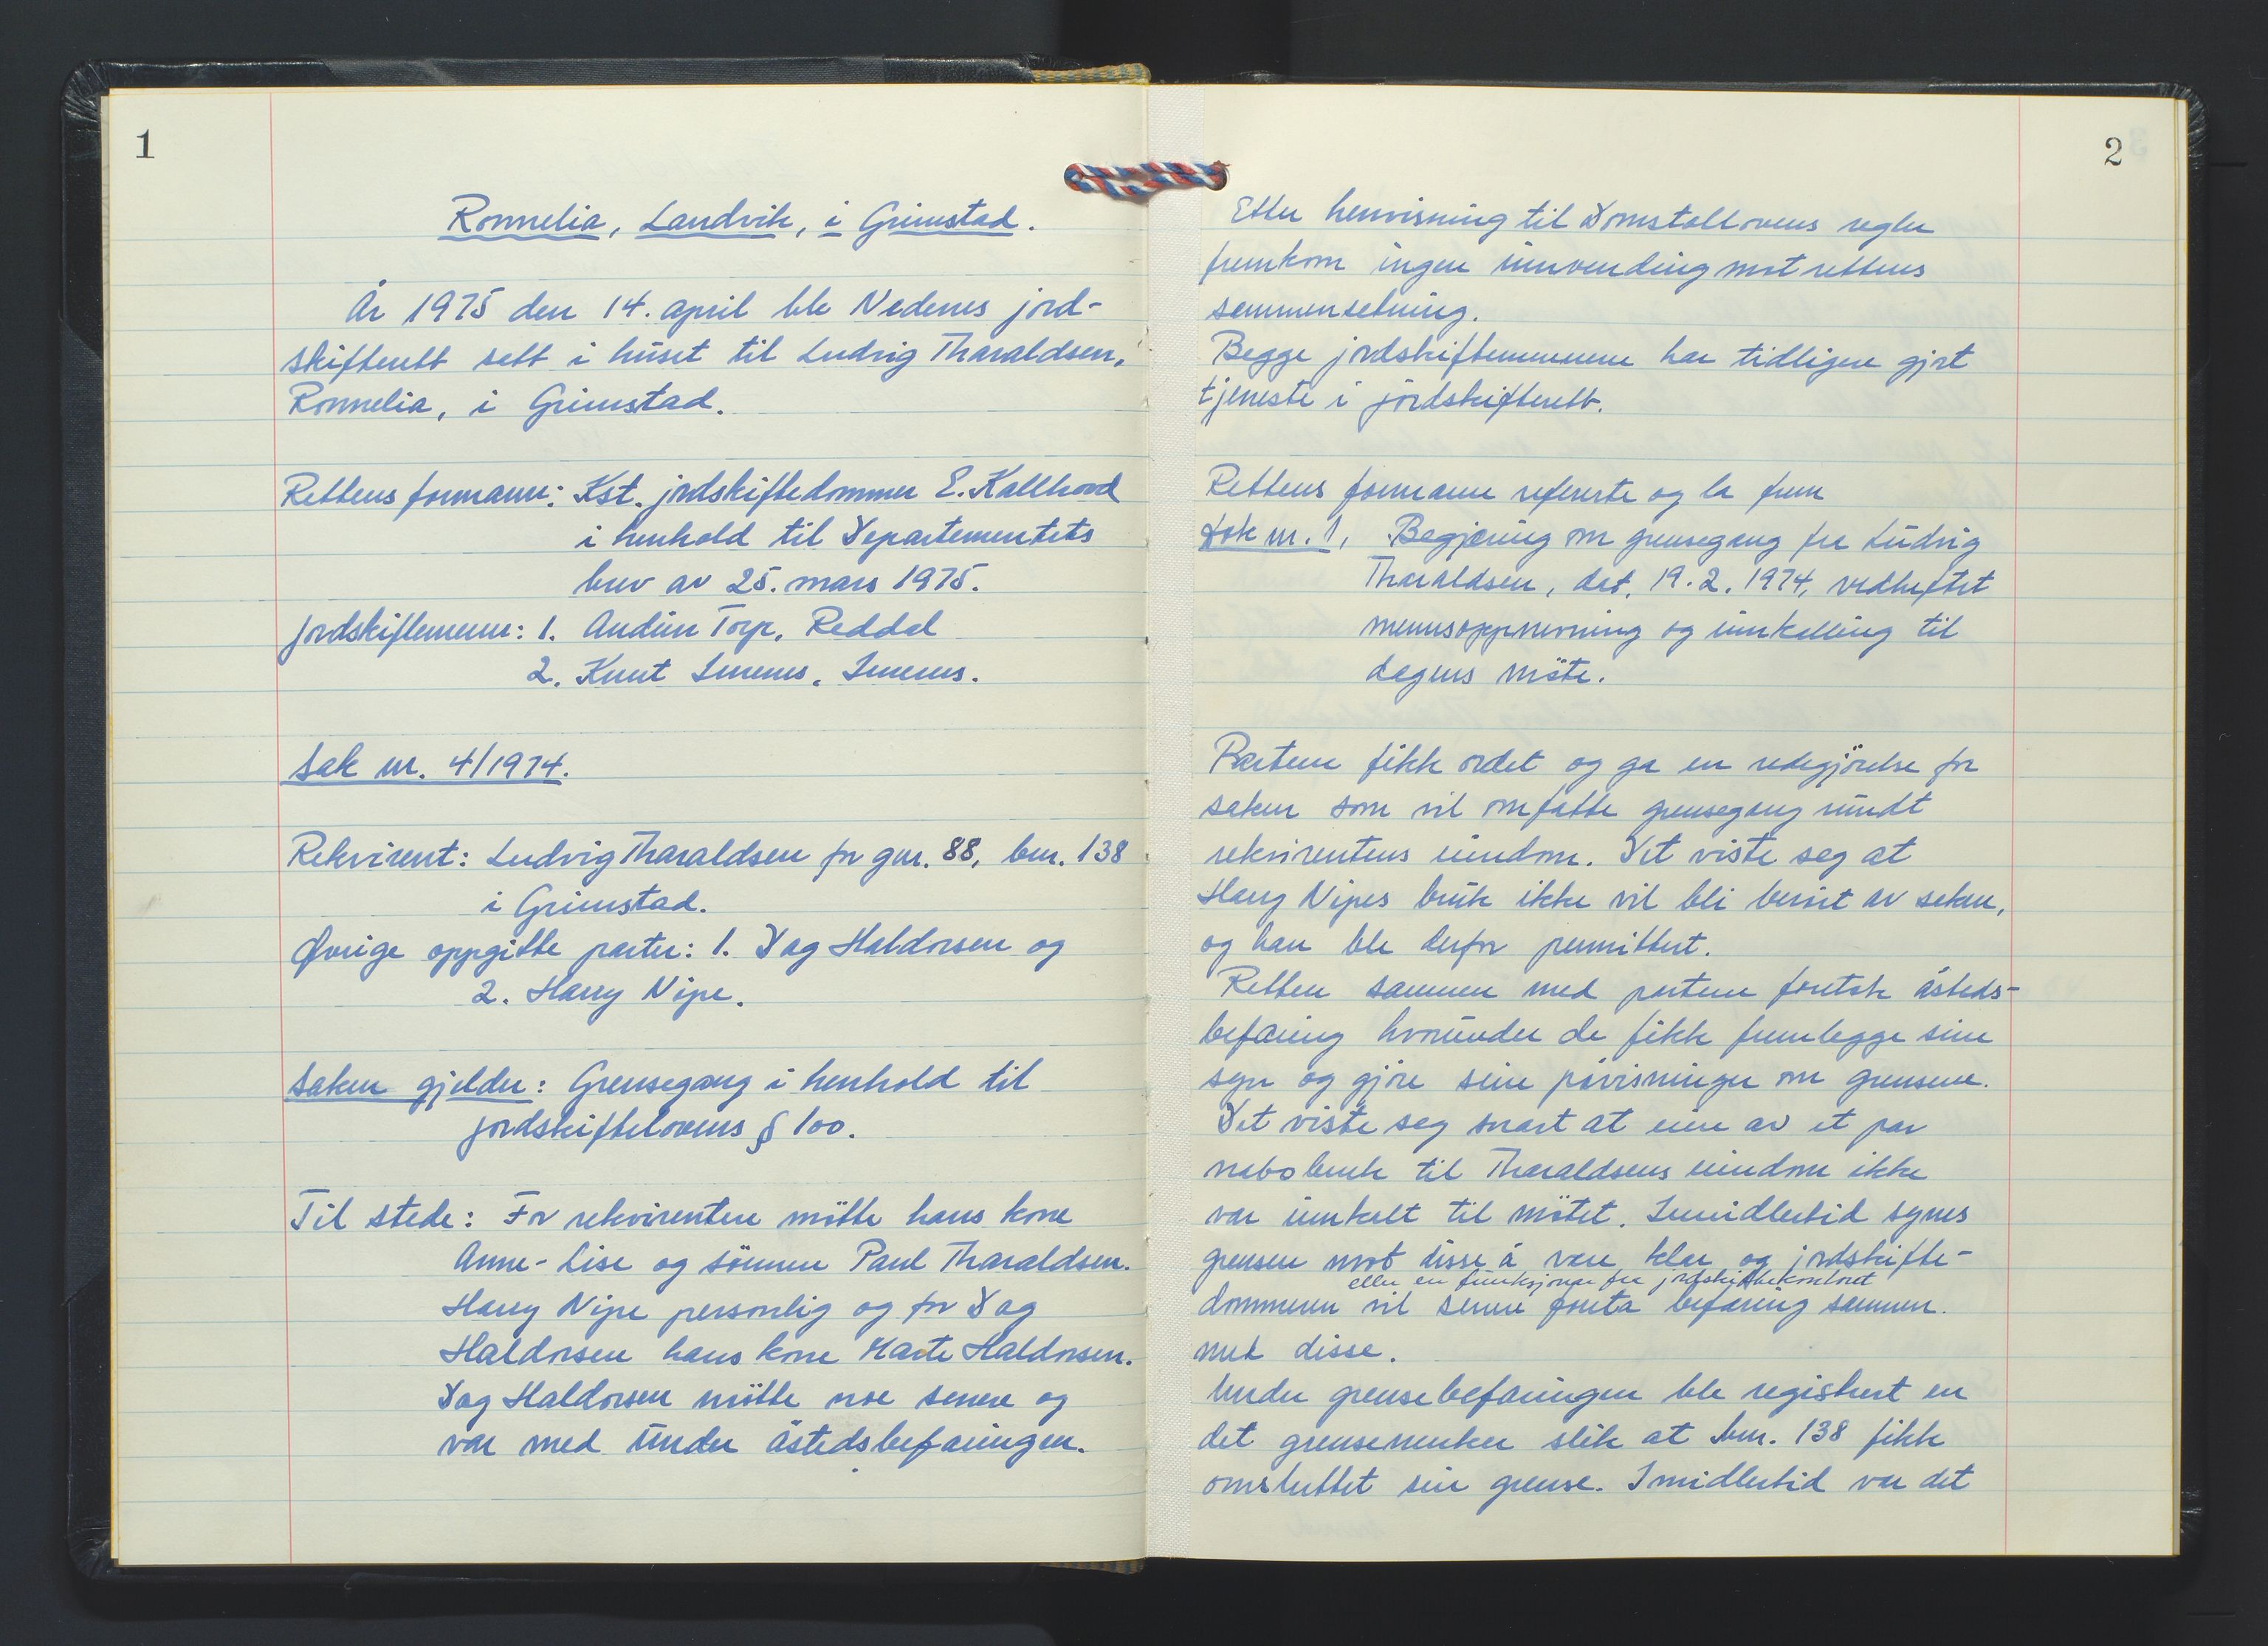 1
Ronnelia, Landvik, i Grimstad.
År 1975 den 14. april ble Nedenes jord-
skifterett sett i huset til Ludvig Tharaldsen,
Ronnelia, i Grimstad.
Rettens formann: Kst. jordskiftedommer E. Kallhovd
i henhold til Departementets
brev av 25. mars 1975.
Jordskiftemenn: 1. Audun Torp, Reddal
2. Knut Imenes, Imenes.
Sak nr. 4/1974.
Rekvirent: Ludvig Tharaldsen for gnr. 88, bnr. 138
i Grimstad.
Øvrige oppgitte parter: 1. Dag Haldorsen og
2. Harry Nipe.
Saken gjelder: Grensegang i henhold til
jordskiftelovens § 100.
Til stede: For rekvirenten møtte hans kone
Anne-Lise og sønnen Paul Tharaldsen.
Harry Nipe personlig og for Dag
Haldorsen hans kone Marte Haldorsen.
Dag Haldorsen møtte noe senere og
var med under åstedsbefaringen.
2
Etter henvisning til Domstollovens regler
fremkom ingen innvending mot rettens
sammensetning.
Begge jordskiftemennene har tidligere gjort
tjeneste i jordskifterett.
Rettens formann refererte og la frem
Dok nr. 1, Begjæring om grensegang fra Ludvig
Tharaldsen, dat. 19.2.1974, vedheftet
mennsoppnevning og innkalling til
dagens møte.
Partene fikk ordet og ga en redegjørelse for
saken som vil omfatte grensegang rundt
rekvirentens eiendom. Det viste seg at
Harry Nipes bruk ikke vil bli berørt av saken,
og han ble derfor permittert.
Retten sammen med partene foretok åsteds-
befaring hvorunder de fikk fremlegge sine
syn og gjøre sine påvisninger om grensene.
Det viste seg snart at eiere av et par
nabobruk til Tharaldsens eiendom ikke
var innkalt til møtet. Imidlertid synes
grensen mot disse å være klar og jordskifte-
eller en funksjonær fra jordskiftekontoret
dommeren vil senere foreta befaring sammen
med disse.
Under grensebefaringen ble registrert en
det grensemerker slik at bnr. 138 fikk
omsluttet sin grense. Imidlertid var det